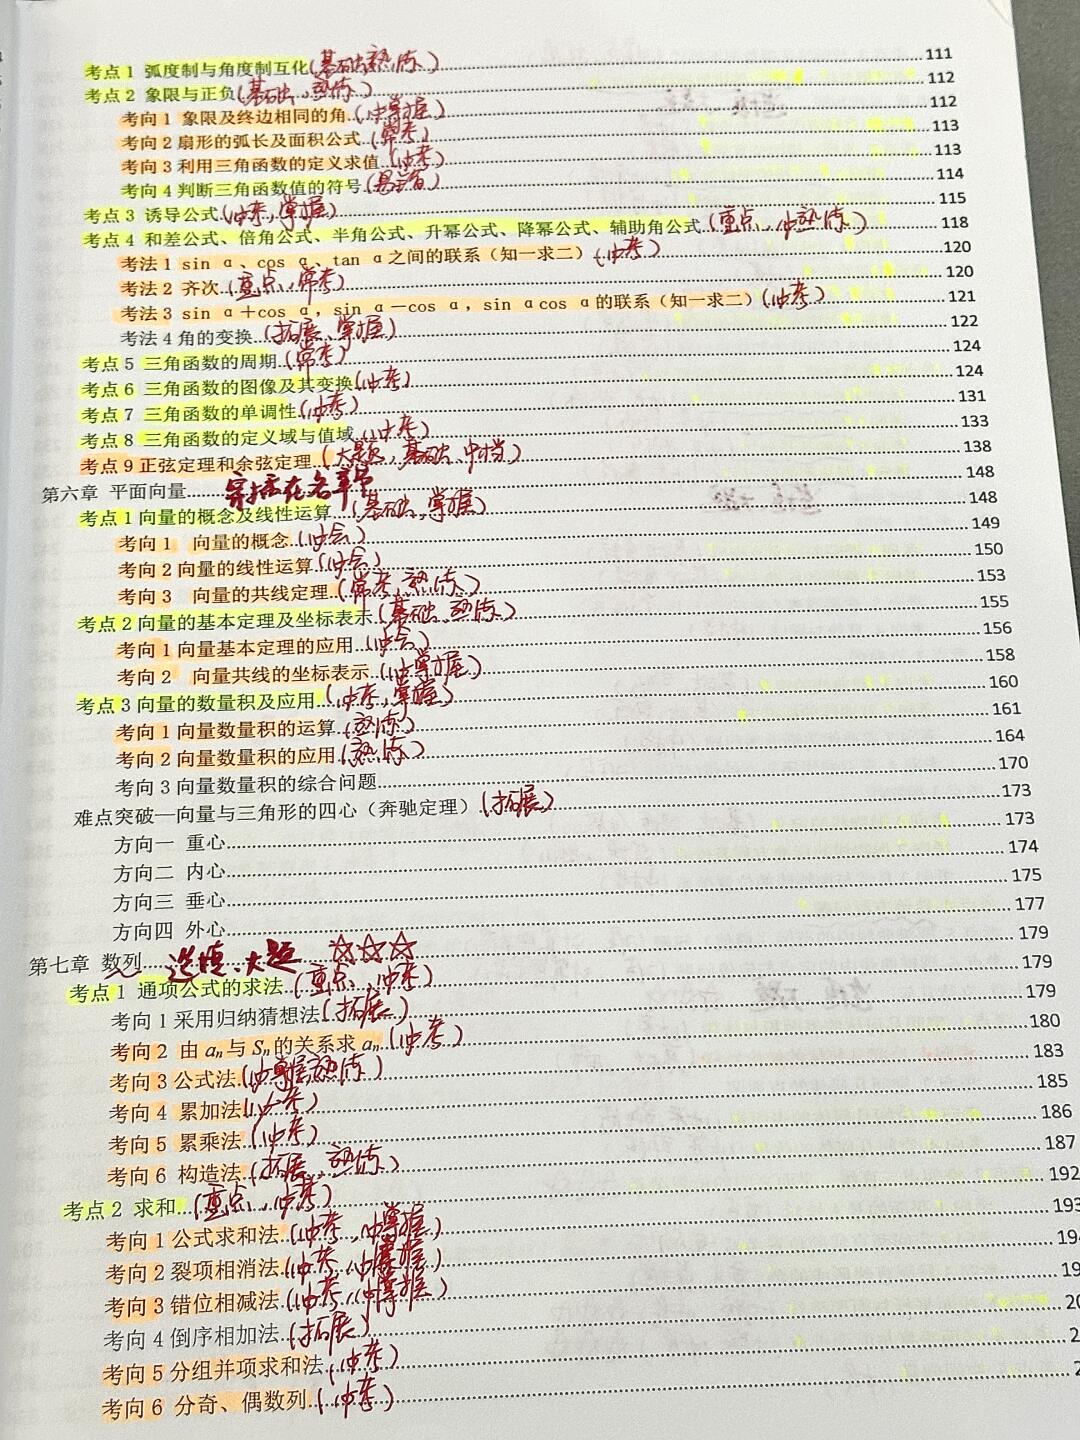 考点1 弧度制与角度制互化(基础,熟练)111
考点2 象限与正负(基础,熟练)112
考向1 象限及终边相同的角(必掌握)112
考向2扇形的弧长及面积公式(常考)113
考向3利用三角函数的定义求值(必考)113
考向4判断三角函数值的符号 114
考点3 诱导公式(必考,掌握)115
考点4 和差公式、倍角公式、半角公式、升幂公式、降幂公式、辅助角公式(重点,必熟练)118
考法1 sin α、cos α、tan α之间的联系(知一求二)(必考)120
考法2 齐次(重点,常考)120
考法3 sin α+cos α, sin α-cos α, sin αcos α的联系(知一求二)(必考)121
考法4角的变换(拓展,掌握)122
考点5 三角函数的周期(常考)124
考点6 三角函数的图像及其变换(必考)124
考点7 三角函数的单调性(必考)131
考点8 三角函数的定义域与值域(必考)133
考点9正弦定理和余弦定理(大题,基础,中档)138
第六章 平面向量 穿插在各章节 148
考点1向量的概念及线性运算(基础,掌握)148
考向1 向量的概念(必会)149
考向2向量的线性运算(必会)150
考向3 向量的共线定理(常考,熟练)153
考点2向量的基本定理及坐标表示(基础,熟练)155
考向1向量基本定理的应用(必会)156
考向2 向量共线的坐标表示(必掌握)158
考点3向量的数量积及应用(必考,掌握)160
考向1向量数量积的运算(熟练)161
考向2向量数量积的应用(熟练)164
考向3向量数量积的综合问题 170
难点突破—向量与三角形的四心(奔驰定理)(拓展)173
方向一 重心 173
方向二 内心 174
方向三 垂心 175
方向四 外心 177
第七章 数列 选填、大题 ☆☆☆ 179
考点1 通项公式的求法(重点,必考)179
考向1采用归纳猜想法(拓展)179
考向2 由an与Sn的关系求an(必考)180
考向3公式法(必掌握熟练)183
考向4 累加法(必考)185
考向5 累乘法(必考)186
考向6 构造法(拓展,熟练)187
考点2 求和(重点,必考)192
考向1公式求和法(必考,必掌握)193
考向2裂项相消法(必考,必掌握)
考向3错位相减法(必考,必掌握)
考向4倒序相加法(拓展)
考向5分组并项求和法(必考)
考向6 分奇、偶数列(必考)